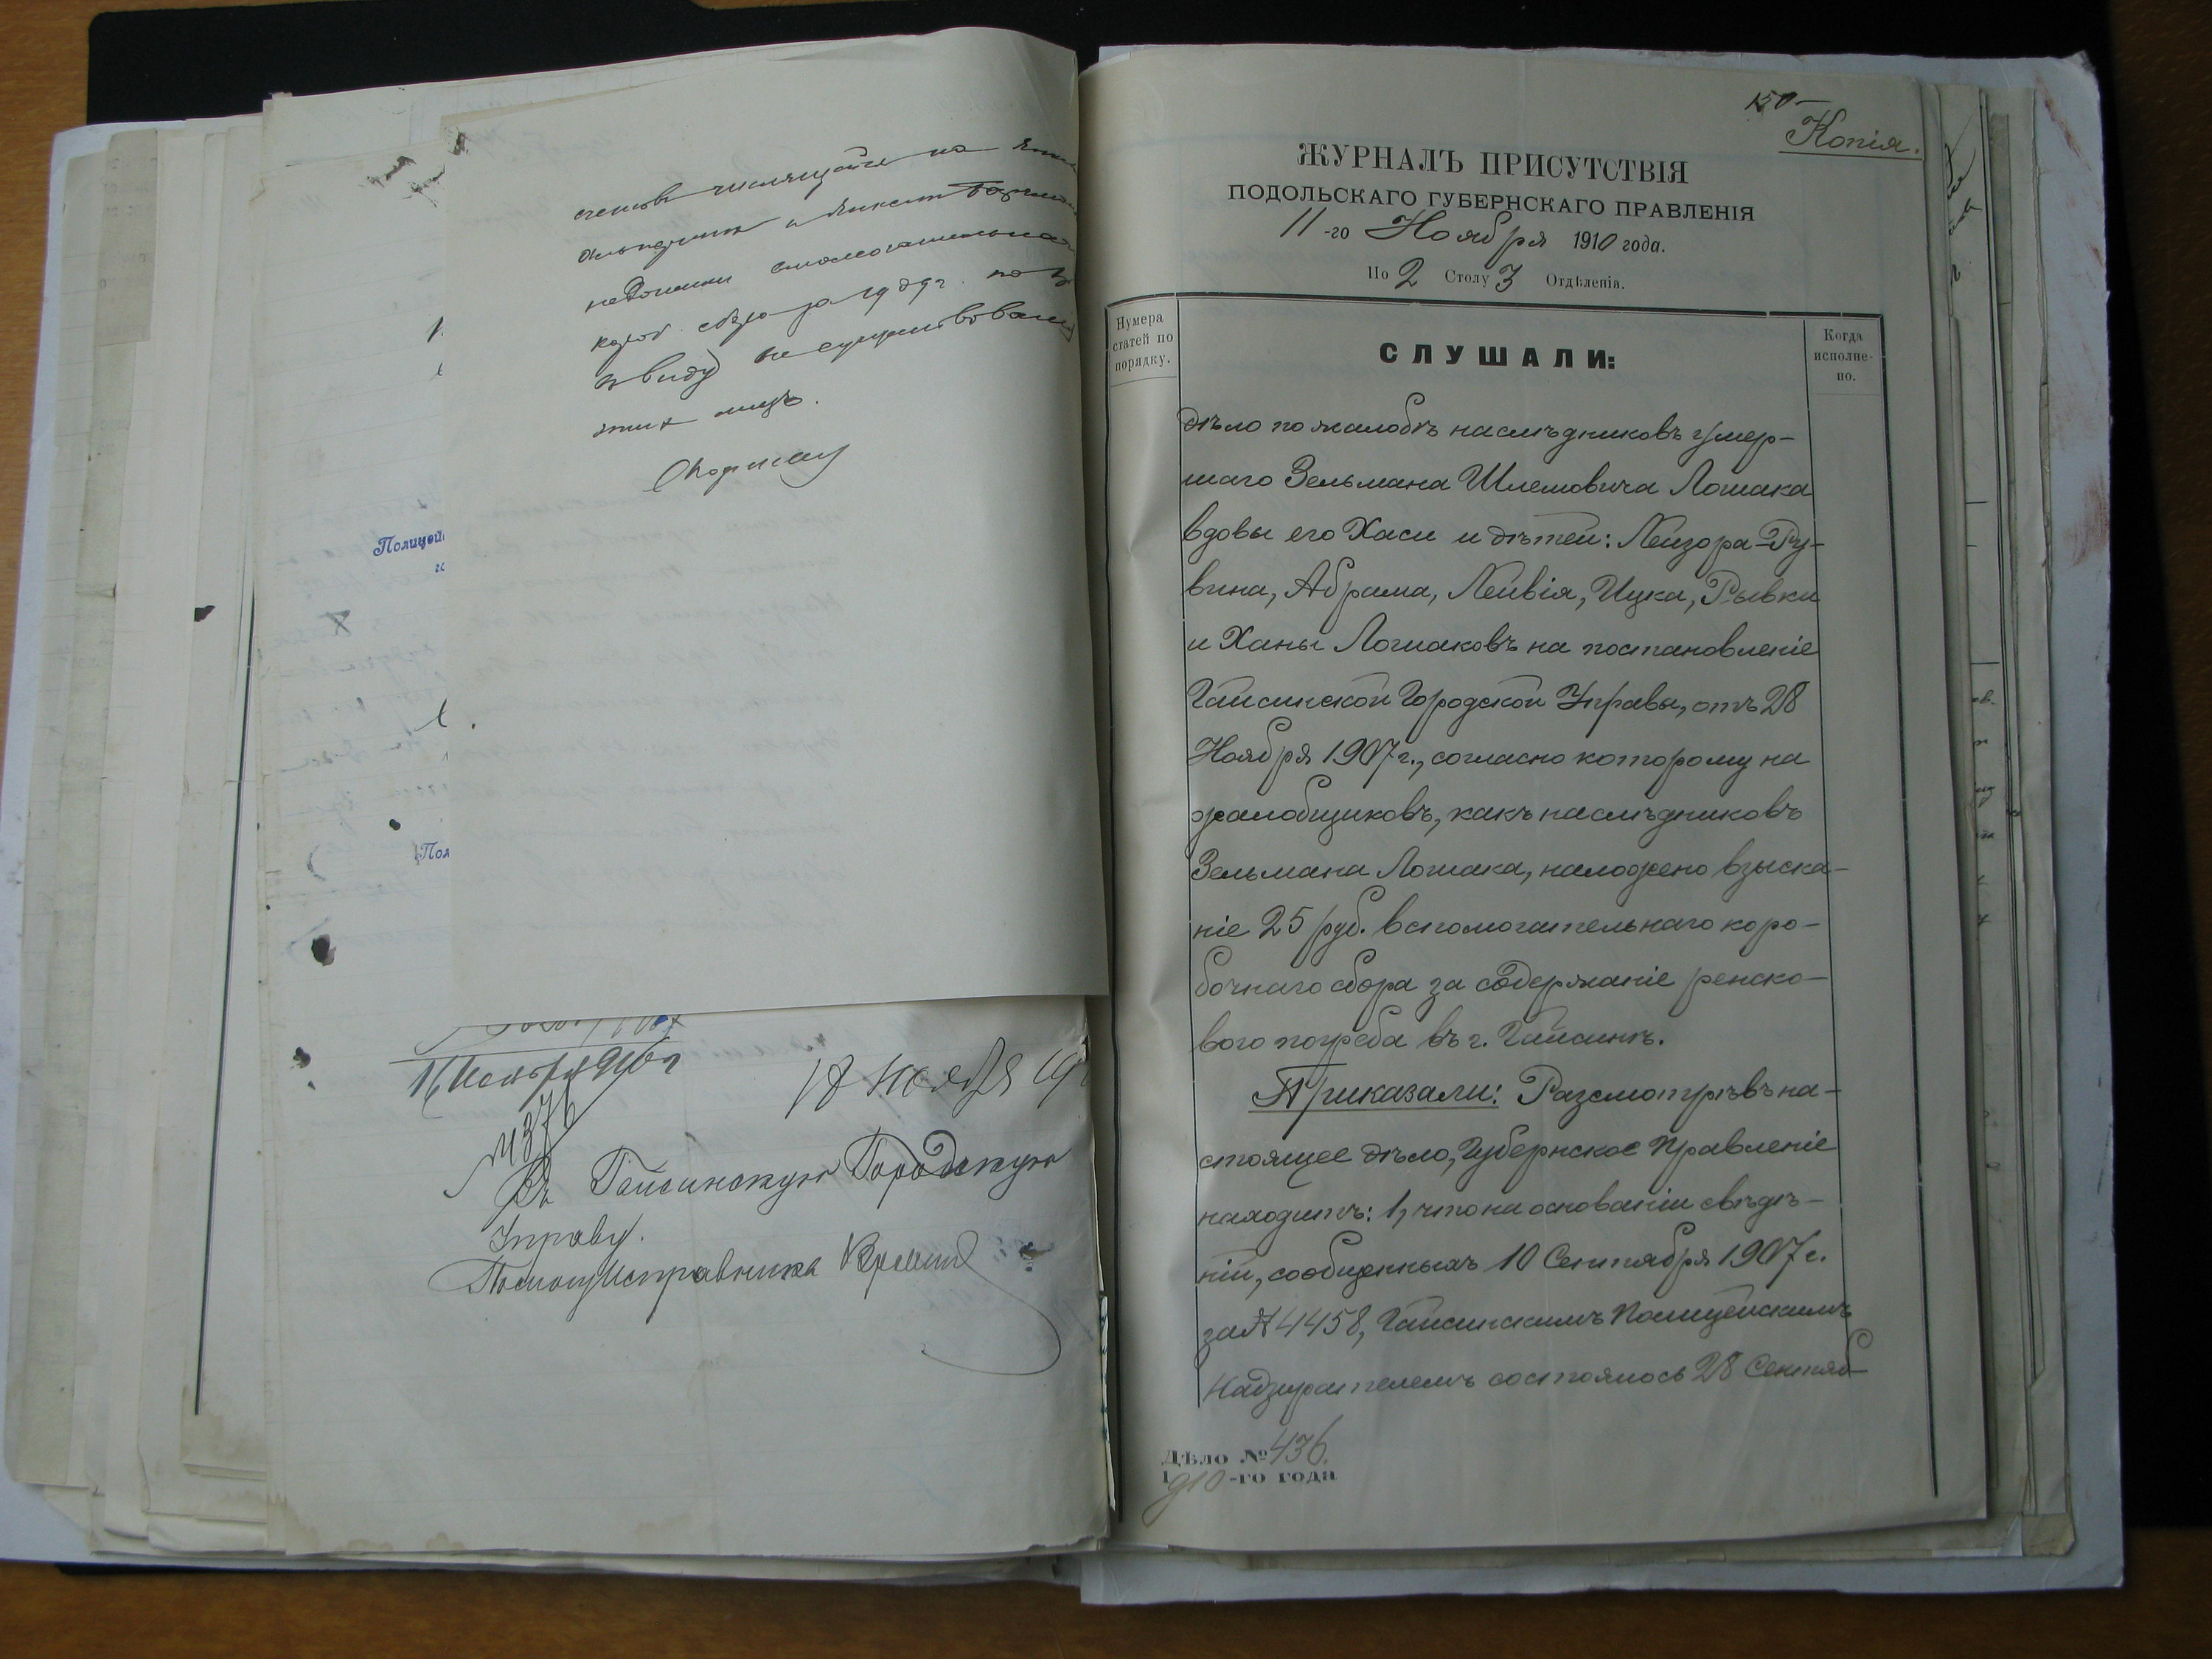 недоимки
короб. сбора за 1909 г. по
в виду не существованія
этихъ лицъ.
Полицей
Пол
18 Ноября 19
4376
Въ Гайсинскую Городскую
Управу.
Исправника
150
Копія.
ЖУРНАЛЪ ПРИСУТСТВІЯ
ПОДОЛЬСКАГО ГУБЕРНСКАГО ПРАВЛЕНІЯ
11-го Ноября 1910 года.
По 2 Столу 3 Отдѣленія.
Нумера статей по порядку.
СЛУШАЛИ:
Когда исполне-но.
дѣло по жалобѣ наслѣдниковъ умер-
шаго Зельмана Шлемовича Лошака
вдовы его Хаси и дѣтей: Лейзора-Ру-
вина, Абрама, Лейвія, Ицка, Рывки
и Ханы Лошаковъ на постановленіе
Гайсинской Городской Управы, отъ 28
Ноября 1907 г., согласно которому на
жалобщиковъ, какъ наслѣдниковъ
Зельмана Лошака, наложено взыска-
ніе 25 руб. вспомогательнаго коро-
бочнаго сбора за содержаніе ренско-
вого погреба въ г. Гайсинѣ.
Приказали: Разсмотрѣвъ на-
стоящее дѣло, Губернское Правленіе
находитъ: 1, что на основаніи свѣдѣ-
ній, сообщенныхъ 10 Сентября 1907 г.
за № 4458, Гайсинскимъ Полицейскимъ
Надзирателемъ состоялось 28 Сентяб
Дѣло № 436.
1910-го года